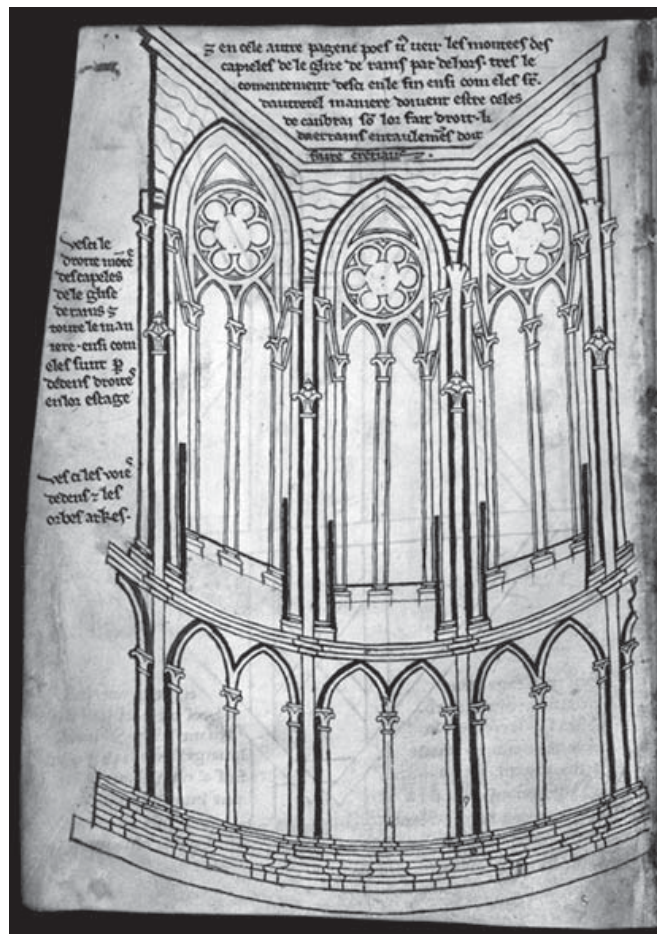 ⁊ en cele autre pagene poes v̾ veir les montees des
capieles de le glize de rains par dehors. tres le
comencement desci en le fin ensi com eles st̃.
dautretel maniere doivent estre celes
de canbrai sõ lor fait droit. li
daerrains entaulemẽs doit
faire cretiaus
vesci le
droite
des capeles
de le glise
de rains ⁊
toute le man
iere. ensi com
eles sunt p̱
dedens droites
en lor estage
ves ci les voies
dedens ⁊ les
orbes arkes.